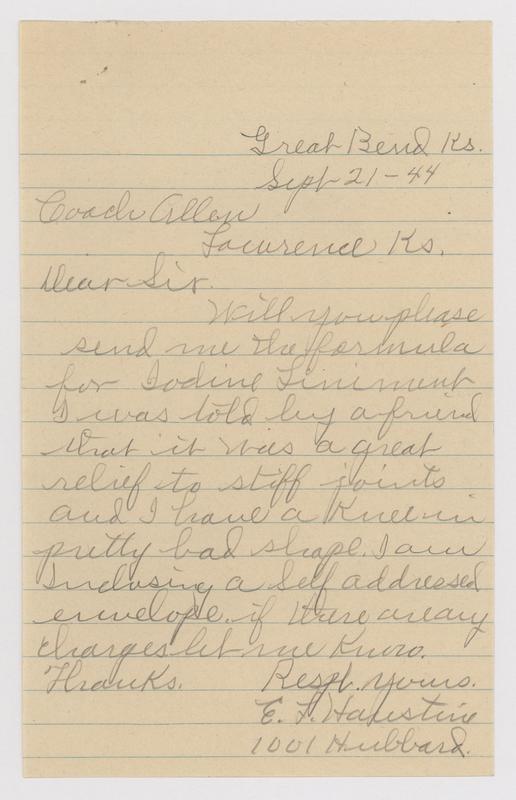 Great Bend Ks.
Sept 21-44
Coach Allen
Lawrence Ks.
Dear Sir.
Will you please
send me the formula
for Iodine Liniment
I was told by a friend
that it was a great
relief to stiff joints
and I have a Knee in
pretty bad shape. I am
Inclosing a Self addressed
envelope. if there are any
charges let me Know.
Thanks. Respt. yours.
E. F. Haustine
1001 Hubbard.